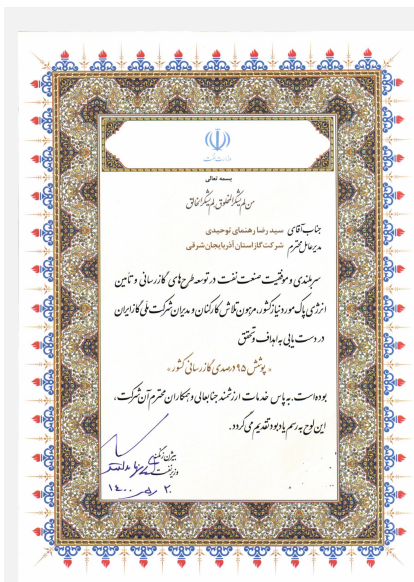 وزارت نفت
بسمه تعالی
من لم یشکر المخلوق لم یشکر الخالق
جناب آقای سید رضا رهنمای توحیدی
مدیرعامل محترم شرکت گاز استان آذربایجان شرقی
سربلندی و موفقیت صنعت نفت در توسعه طرح‌های گازرسانی و تأمین
انرژی پاک مورد نیاز کشور، مرهون تلاش کارکنان و مدیران شرکت ملی گاز ایران
در دست یابی به اهداف و تحقق
« پوشش ۹۵ درصدی گازرسانی کشور »
بوده است. به پاس خدمات ارزشمند جنابعالی و همکاران محترم آن شرکت،
این لوح به رسم یادبود تقدیم می گردد.
بیژن زنگنه
وزیر نفت